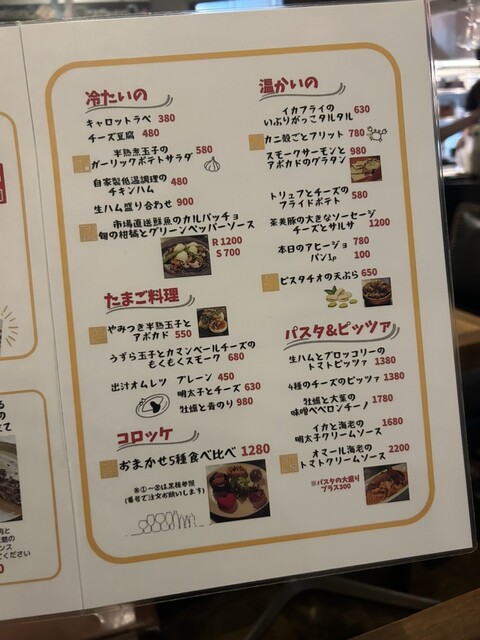 冷たいの
キャロットラペ 380
チーズ豆腐 480
半熟煮玉子の
ガーリックポテトサラダ 580
自家製低温調理の
チキンハム 480
生ハム盛り合わせ 900
市場直送鮮魚のカルパッチョ
旬の柑橘とグリーンペッパーソース
R 1200
S 700
たまご料理
やみつき半熟玉子と
アボカド 550
うずら玉子とカマンベールチーズの
もくもくスモーク 680
出汁オムレツ プレーン 450
明太子とチーズ 630
牡蠣と青のり 980
コロッケ
おまかせ5種食べ比べ 1280
※①〜⑧は黒板参照
(番号で注文お願いします)
温かいの
イカフライの
いぶりがっこタルタル 630
カニ殻ごとフリット 780
スモークサーモンと
アボカドのグラタン 980
トリュフとチーズの
フライドポテト 580
茶美豚の大きなソーセージ
チーズとサルサ 1200
本日のアヒージョ 780
パン1p 100
ピスタチオの天ぷら 650
パスタ&ピッツァ
生ハムとブロッコリーの
トマトピッツァ 1380
4種のチーズのピッツァ 1380
牡蠣と大葉の
味噌ペペロンチーノ 1780
イカと海老の
明太子クリームソース 1680
オマール海老の
トマトクリームソース 2200
※パスタの大盛り
プラス300